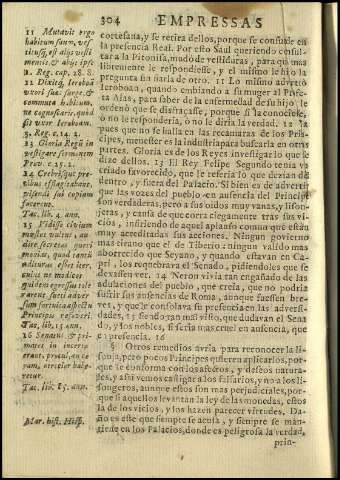 304 EMPRESSAS
11 Mutavit ergo
habitum suum, ves
titusq; est alijs vesti
mentis, & abijt ipse
1. Reg. cap. 28. 8.
12 Dixitq; Ieroboã
vxori suæ, surge, &
commuta habitum,
ne cognoscaris, quod
sis vxor Ieroboam.
3. Reg. c. 14. 2.
13 Gloria Regũ in
vestigare sermonem
Prov. c. 25. 2.
14 Crebrisque pre-
Tac. lib. 4. ann.
15
Tac. lib. 15 ann.
16 Senatus & pri-
mores in incerto
erant, procul, an co
ram, atrocior habe-
retur.
Tac. lib. 15. ann.
Mar. hist. Hisp.
cortesana, y se retira dellos, porque se consude en
la presencia Real. Por esto Saul queriendo consul-
tar a la Pitonisa, mudò de vestiduras, para que mas
libremente le respondiesse, y el mismo le hizo la
pregunta sin fiarla de otro. 11 Lo mismo advirtiò
Ieroboan, quando embiando a su muger al Profe-
ta Aìas, para saber de la enfermedad de su hijo, le
ordenò que se disfraçasse, porque si la conociese,
ò no la responderia, ò no le diria la verdad. 12 Ia
pues que no se halla en las recamaras de los Prin-
cipes, menester es la industria para buscarla en otras
partes. Gloria es de los Reyes investigar lo que se
dize dellos. 13 El Rey Felipe Segundo tenia vn
criado favorecido, que le referia lo que dezian del
dentro, y fuera del Palacio. Si bien es de advertir
que las vozes del pueblo en ausencia del Principe
son verdaderas, pero a sus oidos muy vanas, y lison-
jeras, y causa de que corra ciegamente tras sus vi-
cios, infiriendo de aquel aplauso comun que estàn
muy acreditadas sus acciones. Ningun govierno
mas tirano que el de Tiberio: ningun valido mas
aborrecido que Seyano, y quando estavan en Ca-
pri, los requebrava el Senado, pidiendoles que se
dexassen ver. 14 Neron vivia tan engañado de las
adulaciones del pueblo, que creìa, que no podria
sufrir sus ausencias de Roma, aunque fuessen bre-
ves, y que le consolava su presencia en las adversi-
dades, 15 siendo tan mal visto, que dudavan el Sena
do, y los nobles, si seria mas cruel en ausencia, que
en presencia. 16
§ Otros remedios avria para reconocer la li-
sonja, pero pocos Principes quieren aplicarlos, por-
que se conforma con los afectos, y deseos natura-
les, y assi vemos castigar a los falsarios, y no a los li-
songeros, aunque estos son mas perjudiciales, por-
que si aquellos levantan la ley de las monedas, estos
la de los vicios, y los hazen parecer virtudes. Da-
ño es este que siempre se acusa, y siempre se man-
tiene en los Palacios, donde es peligrosa la verdad,
prin-